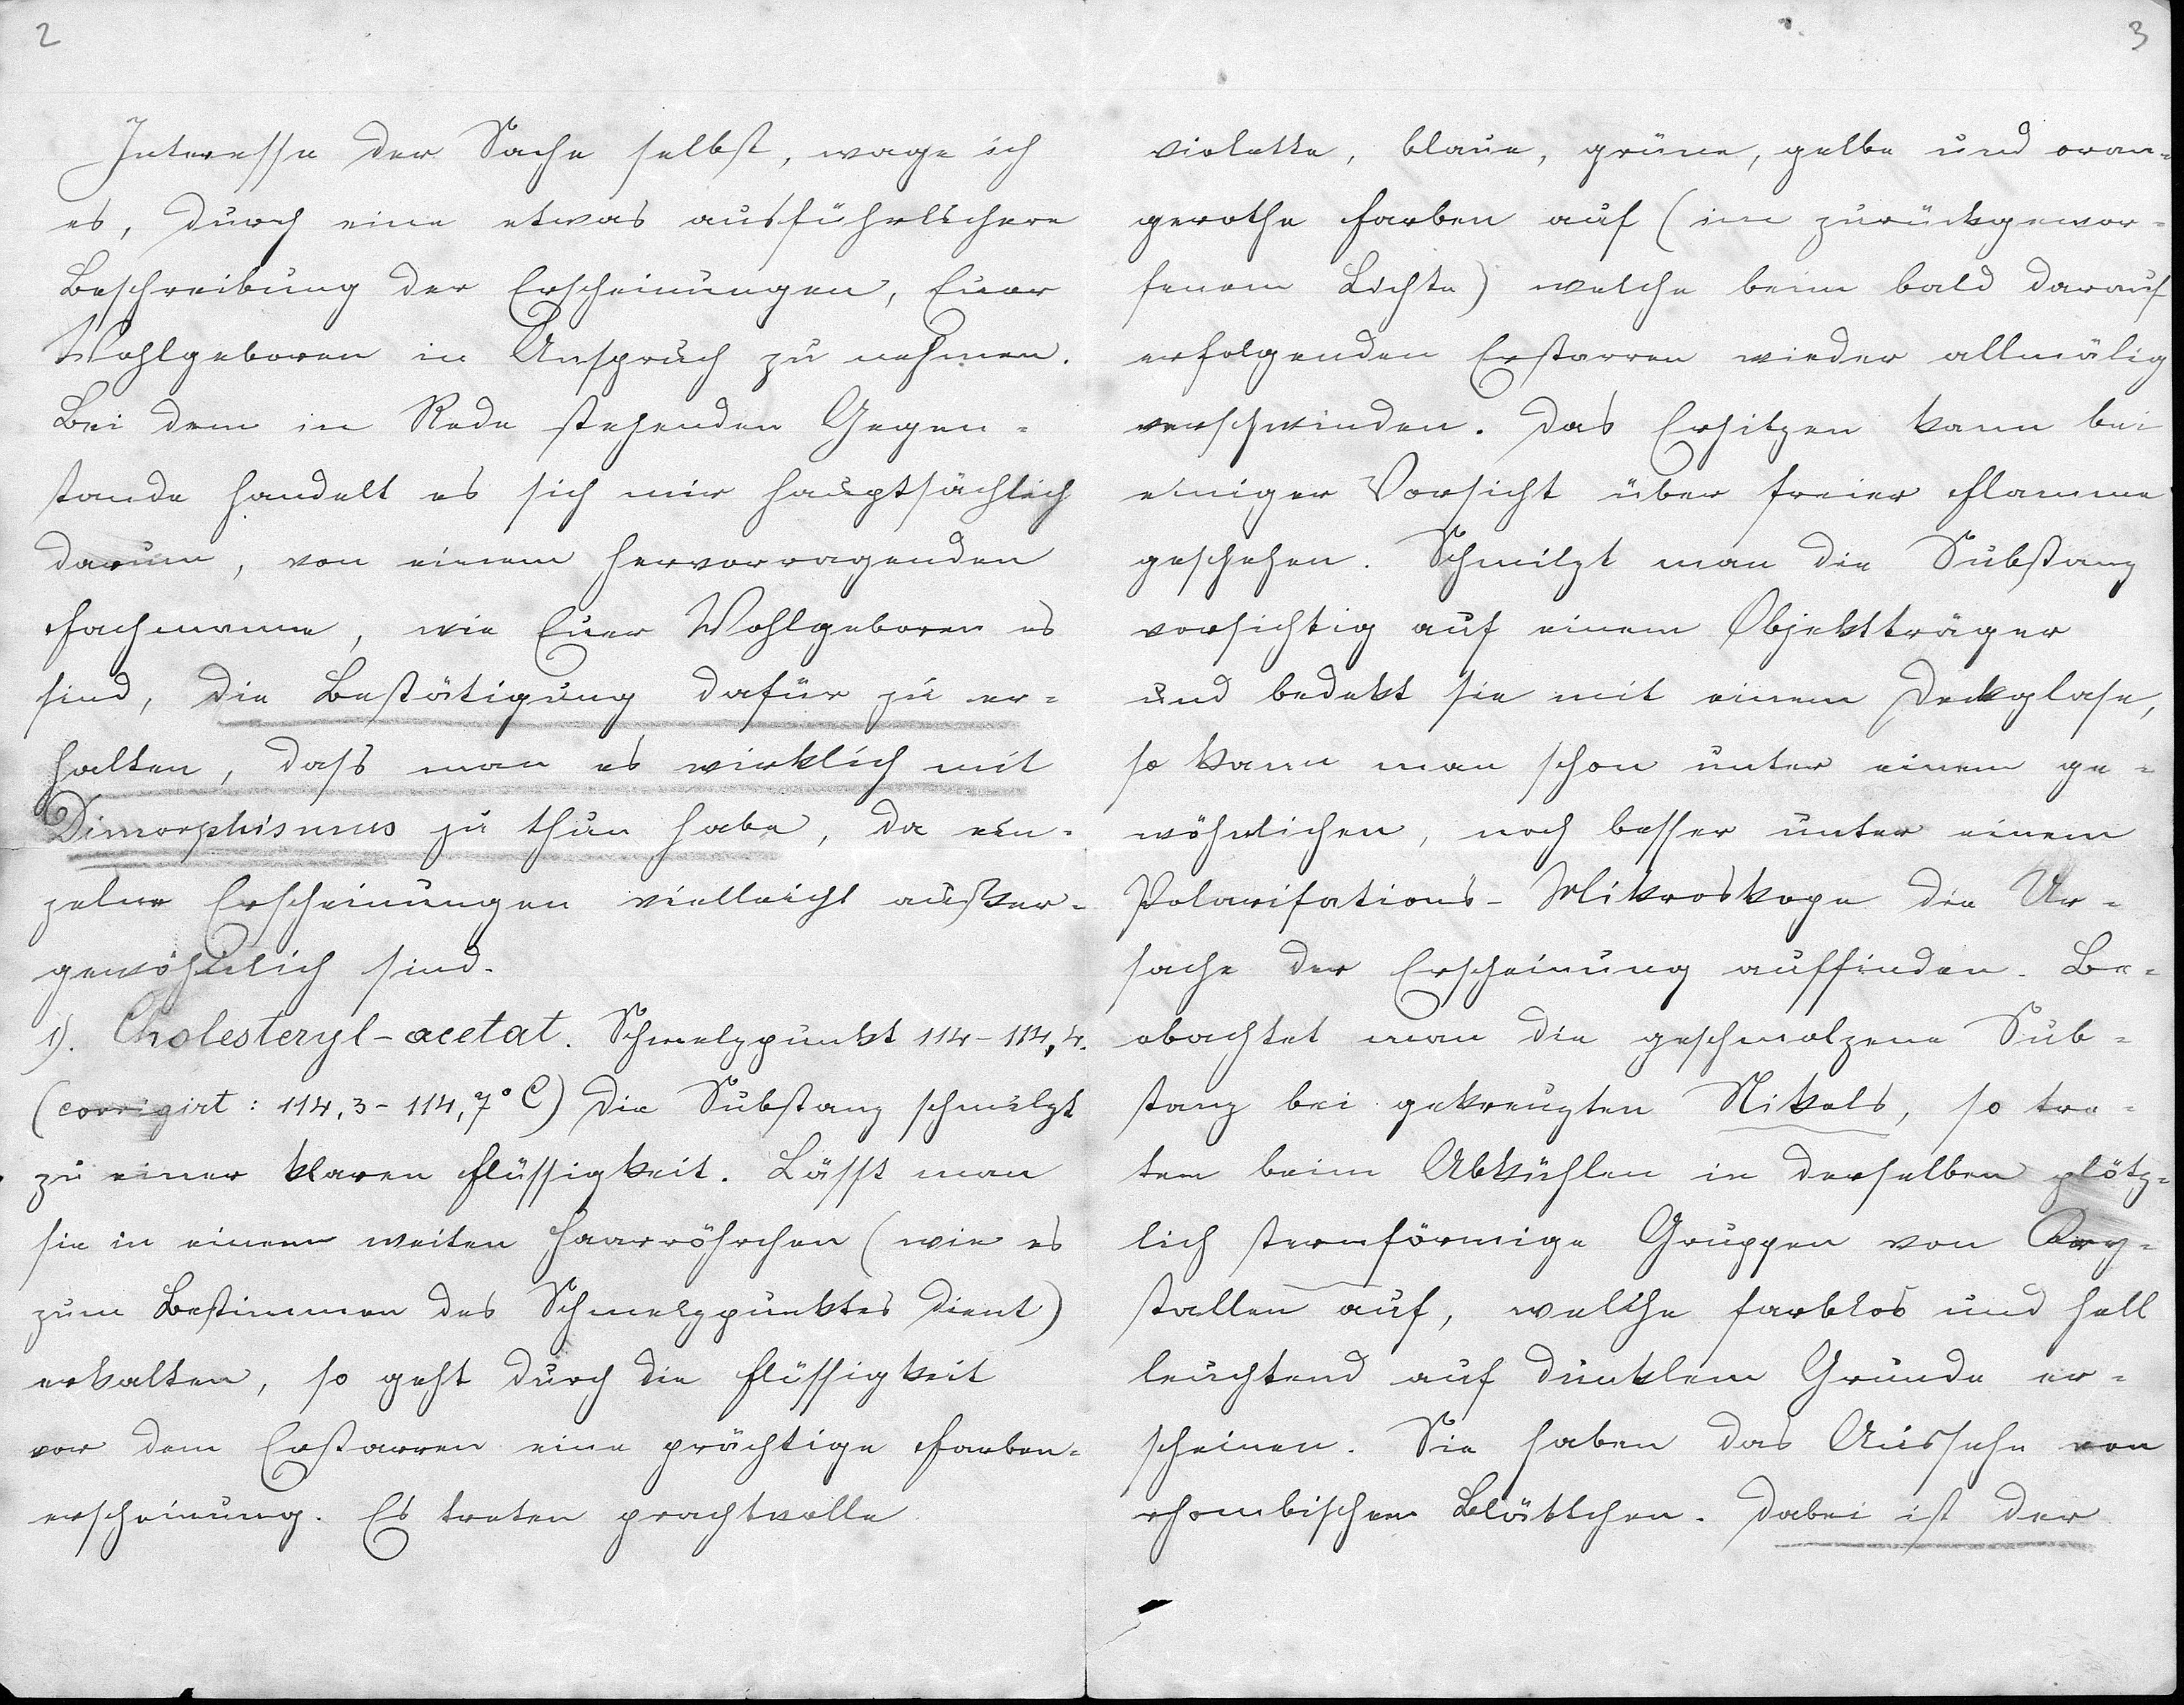 2
Interesse der Sache selbst, wage ich
es, durch eine etwas ausführlichere
Beschreibung der Erscheinungen, Euer
Wohlgeboren in Anspruch zu nehmen.
Bei dem in Rede stehenden Gegen-
stande handelt es sich mir hauptsächlich
darum, von einem hervorragenden
Fachmanne, wie Euer Wohlgeboren es
sind, die Bestätigung dafür zu er-
halten, dass man es wirklich mit
Dimorphismus zu thun habe, da ein-
zelne Erscheinungen vielleicht außer-
gewöhnlich sind.
1). Cholesteryl-acetat. Schmelzpunkt 114-114,4.
(corrigirt: 114,3-114,7° C) Die Substanz schmilzt
zu einer klaren Flüssigkeit. Lässt man
sie in einem weiten Haarröhrchen (wie es
zum Bestimmen des Schmelzpunktes dient)
erkalten, so geht durch die Flüssigkeit
vor dem Erstarren eine prächtige Farben-
erscheinung. Es treten prachtvolle
3
violette, blaue, grüne, gelbe und oran-
gerothe Farben auf (im zurückgewor-
fenem Lichte) welche beim bald darauf
erfolgenden Erstarren wieder allmälig
verschwinden. Das Erhitzen kann bei
einiger Vorsicht über freier Flamme
geschehen. Schmilzt man die Substanz
vorsichtig auf einem Objektträger
und bedekt sie mit einem Deckglase,
so kann man schon unter einem ge-
wöhnlichen, noch besser unter einem
Polarisations-Mikroskope die Ur-
sache der Erscheinung auffinden. Be-
obachtet man die geschmolzene Sub-
stanz bei gekreuzten Nikols, so tre-
ten beim Abkühlen in derselben plötz-
lich sternförmige Gruppen von Cry-
stallen auf, welche farblos und hell
leuchtend auf dunklem Grunde er-
scheinen. Sie haben das Aussehn von
rhombischen Blättchen. Dabei ist der